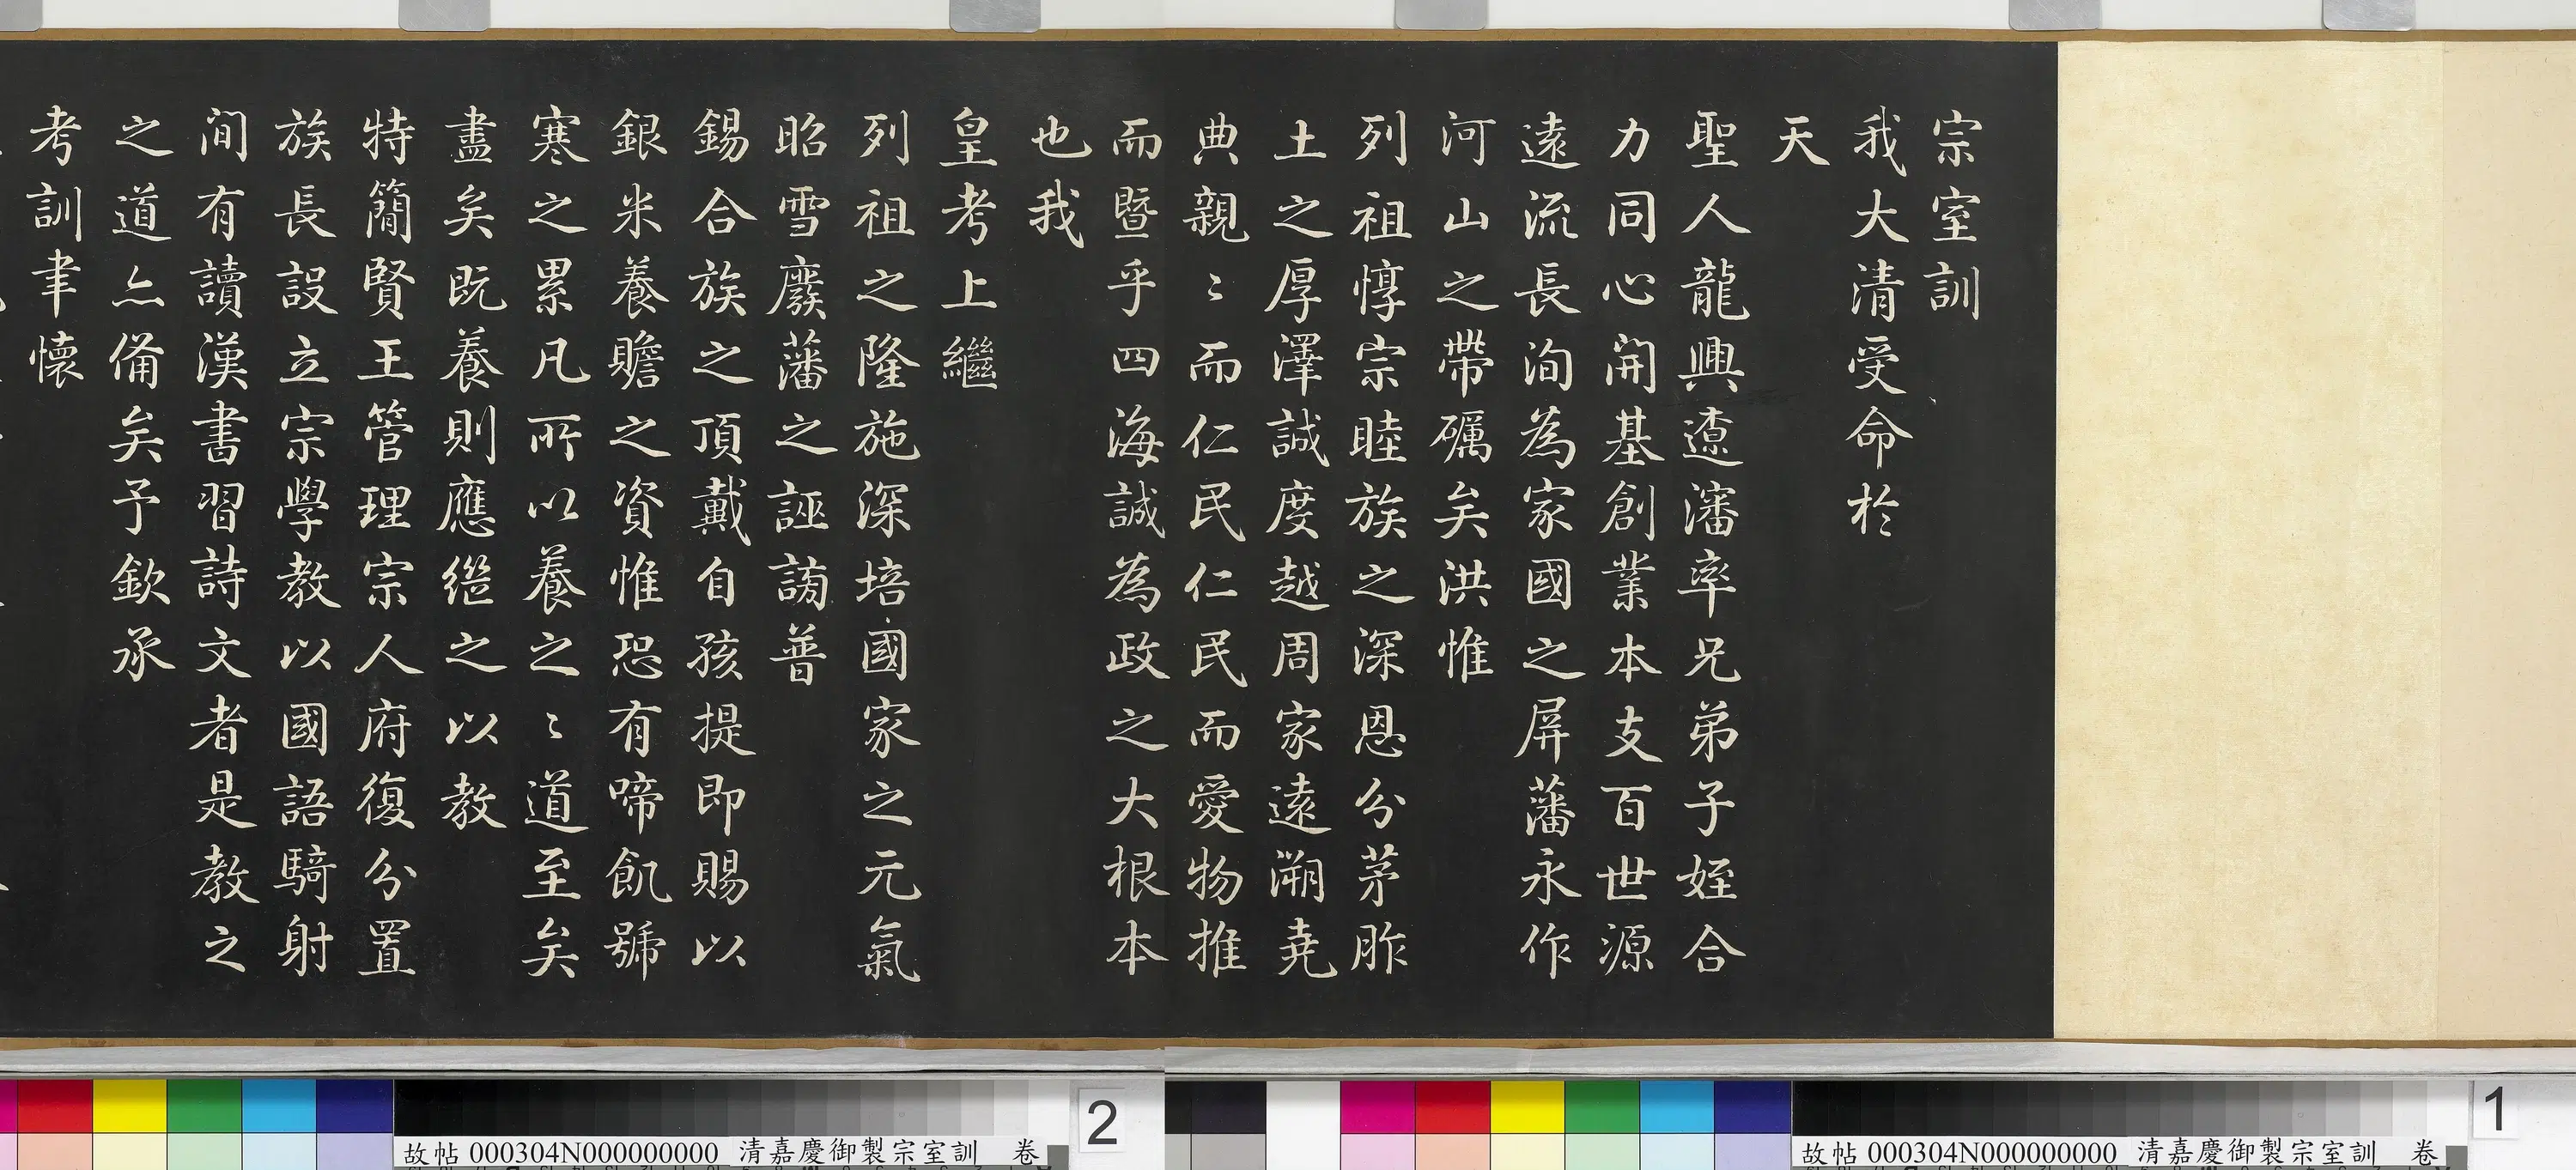 宗室訓
我大清受命於
天
聖人龍興遼瀋率兄弟子姪合
力同心開基創業本支百世源
遠流長洵為家國之屏藩永作
河山之帶礪矣洪惟
列祖惇宗睦族之深恩分茅胙
土之厚澤誠度越周家遠溯堯
典親〻而仁民仁民而愛物推
而暨乎四海誠為政之大根本
也我
皇考上繼
列祖之隆施深培國家之元氣
昭雪廢藩之誣謗普
錫合族之頂戴自孩提即賜以
銀米養贍之資惟恐有啼飢號
寒之累凡所以養之〻道至矣
盡矣既養則應繼之以教
特簡賢王管理宗人府復分置
族長設立宗學教以國語騎射
間有讀漢書習詩文者是教之
之道亦備矣予欽承
考訓聿懷
2
故帖 000304N000000000 清嘉慶御製宗室訓 卷
1
故帖 000304N000000000 清嘉慶御製宗室訓 卷